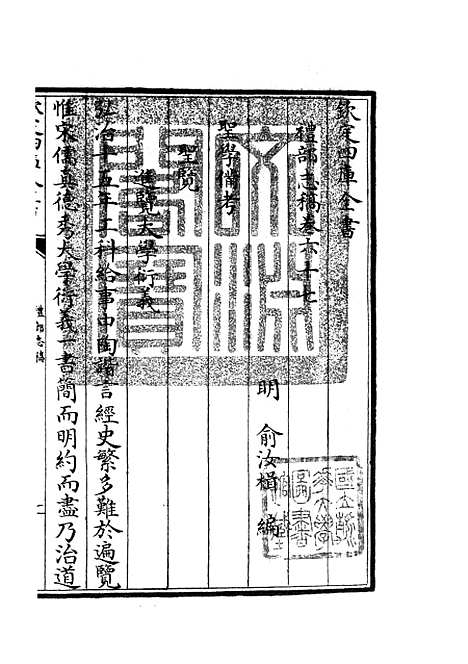 欽定四庫全書
禮部志稿卷六十七
明 俞汝楫 編
聖學備考
聖覽
進覽大學衍義
弘治十五年工科給事中陶諧言經史繁多難於遍覽
惟宋儒真德秀大學衍義一書簡而明約而盡乃治道
禮部志稿